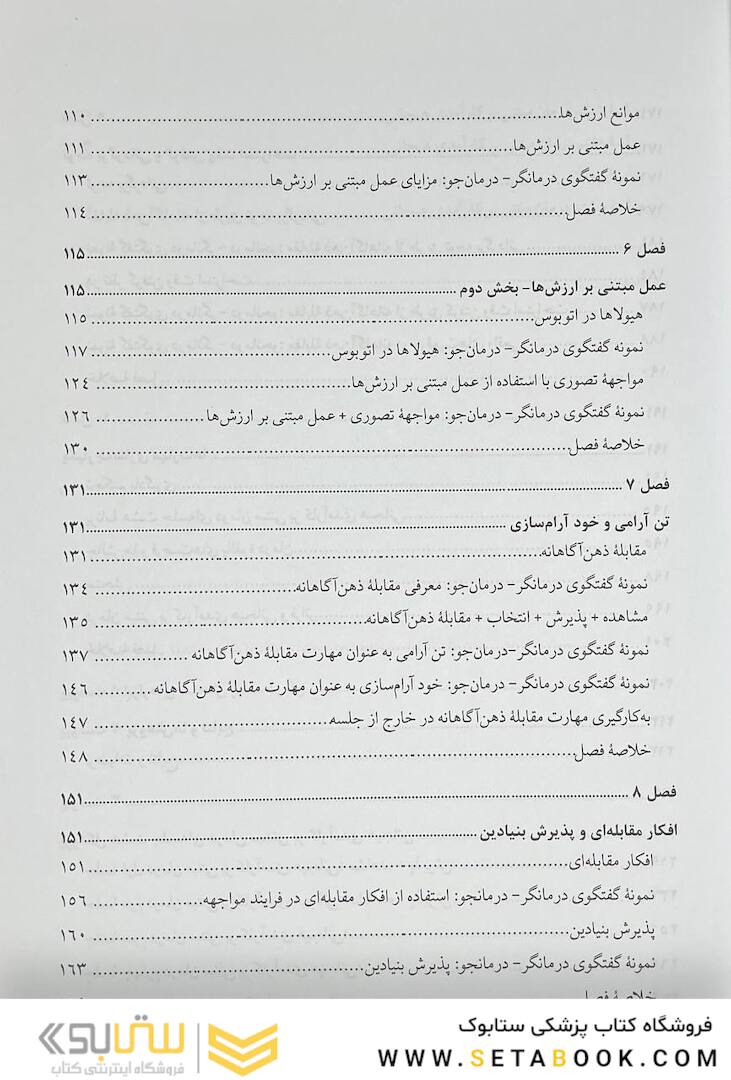 موانع ارزش‌ها............ ۱۱۰
عمل مبتنی بر ارزش‌ها............ ۱۱۱
نمونهٔ گفتگوی درمانگر- درمان‌جو: مزایای عمل مبتنی بر ارزش‌ها............ ۱۱۳
خلاصهٔ فصل............ ۱۱۴
فصل ۶............ ۱۱۵
عمل مبتنی بر ارزش‌ها- بخش دوم............ ۱۱۵
هیولاها در اتوبوس............ ۱۱۵
نمونه گفتگوی درمانگر- درمان‌جو: هیولاها در اتوبوس............ ۱۱۷
مواجههٔ تصوری با استفاده از عمل مبتنی بر ارزش‌ها............ ۱۲۴
نمونهٔ گفتگوی درمانگر- درمان‌جو: مواجههٔ تصوری + عمل مبتنی بر ارزش‌ها............ ۱۲۶
خلاصهٔ فصل............ ۱۳۰
فصل ۷............ ۱۳۱
تن آرامی و خود آرام‌سازی............ ۱۳۱
مقابلهٔ ذهن‌آگاهانه............ ۱۳۱
نمونهٔ گفتگوی درمانگر- درمان‌جو: معرفی مقابلهٔ ذهن‌آگاهانه............ ۱۳۴
مشاهده + پذیرش + انتخاب + مقابلهٔ ذهن‌آگاهانه............ ۱۳۵
نمونهٔ گفتگوی درمانگر-درمان‌جو: تن آرامی به عنوان مهارت مقابلهٔ ذهن‌آگاهانه............ ۱۳۷
نمونهٔ گفتگوی درمانگر- درمان‌جو: خود آرام‌سازی به عنوان مهارت مقابلهٔ ذهن‌آگاهانه............ ۱۴۶
به‌کارگیری مهارت مقابلهٔ ذهن‌آگاهانه در خارج از جلسه............ ۱۴۷
خلاصهٔ فصل............ ۱۴۸
فصل ۸............ ۱۵۱
افکار مقابله‌ای و پذیرش بنیادین............ ۱۵۱
افکار مقابله‌ای............ ۱۵۱
نمونهٔ گفتگوی درمانگر- درمانجو: استفاده از افکار مقابله‌ای در فرایند مواجهه............ ۱۵۶
پذیرش بنیادین............ ۱۶۰
نمونهٔ گفتگوی درمانگر- درمانجو: پذیرش بنیادین............ ۱۶۳
خلاصهٔ فصل
فروشگاه کتاب پزشکی ستابوک
WWW.SETABOOK.COM
ستابوک
فروشگاه اینترنتی کتاب